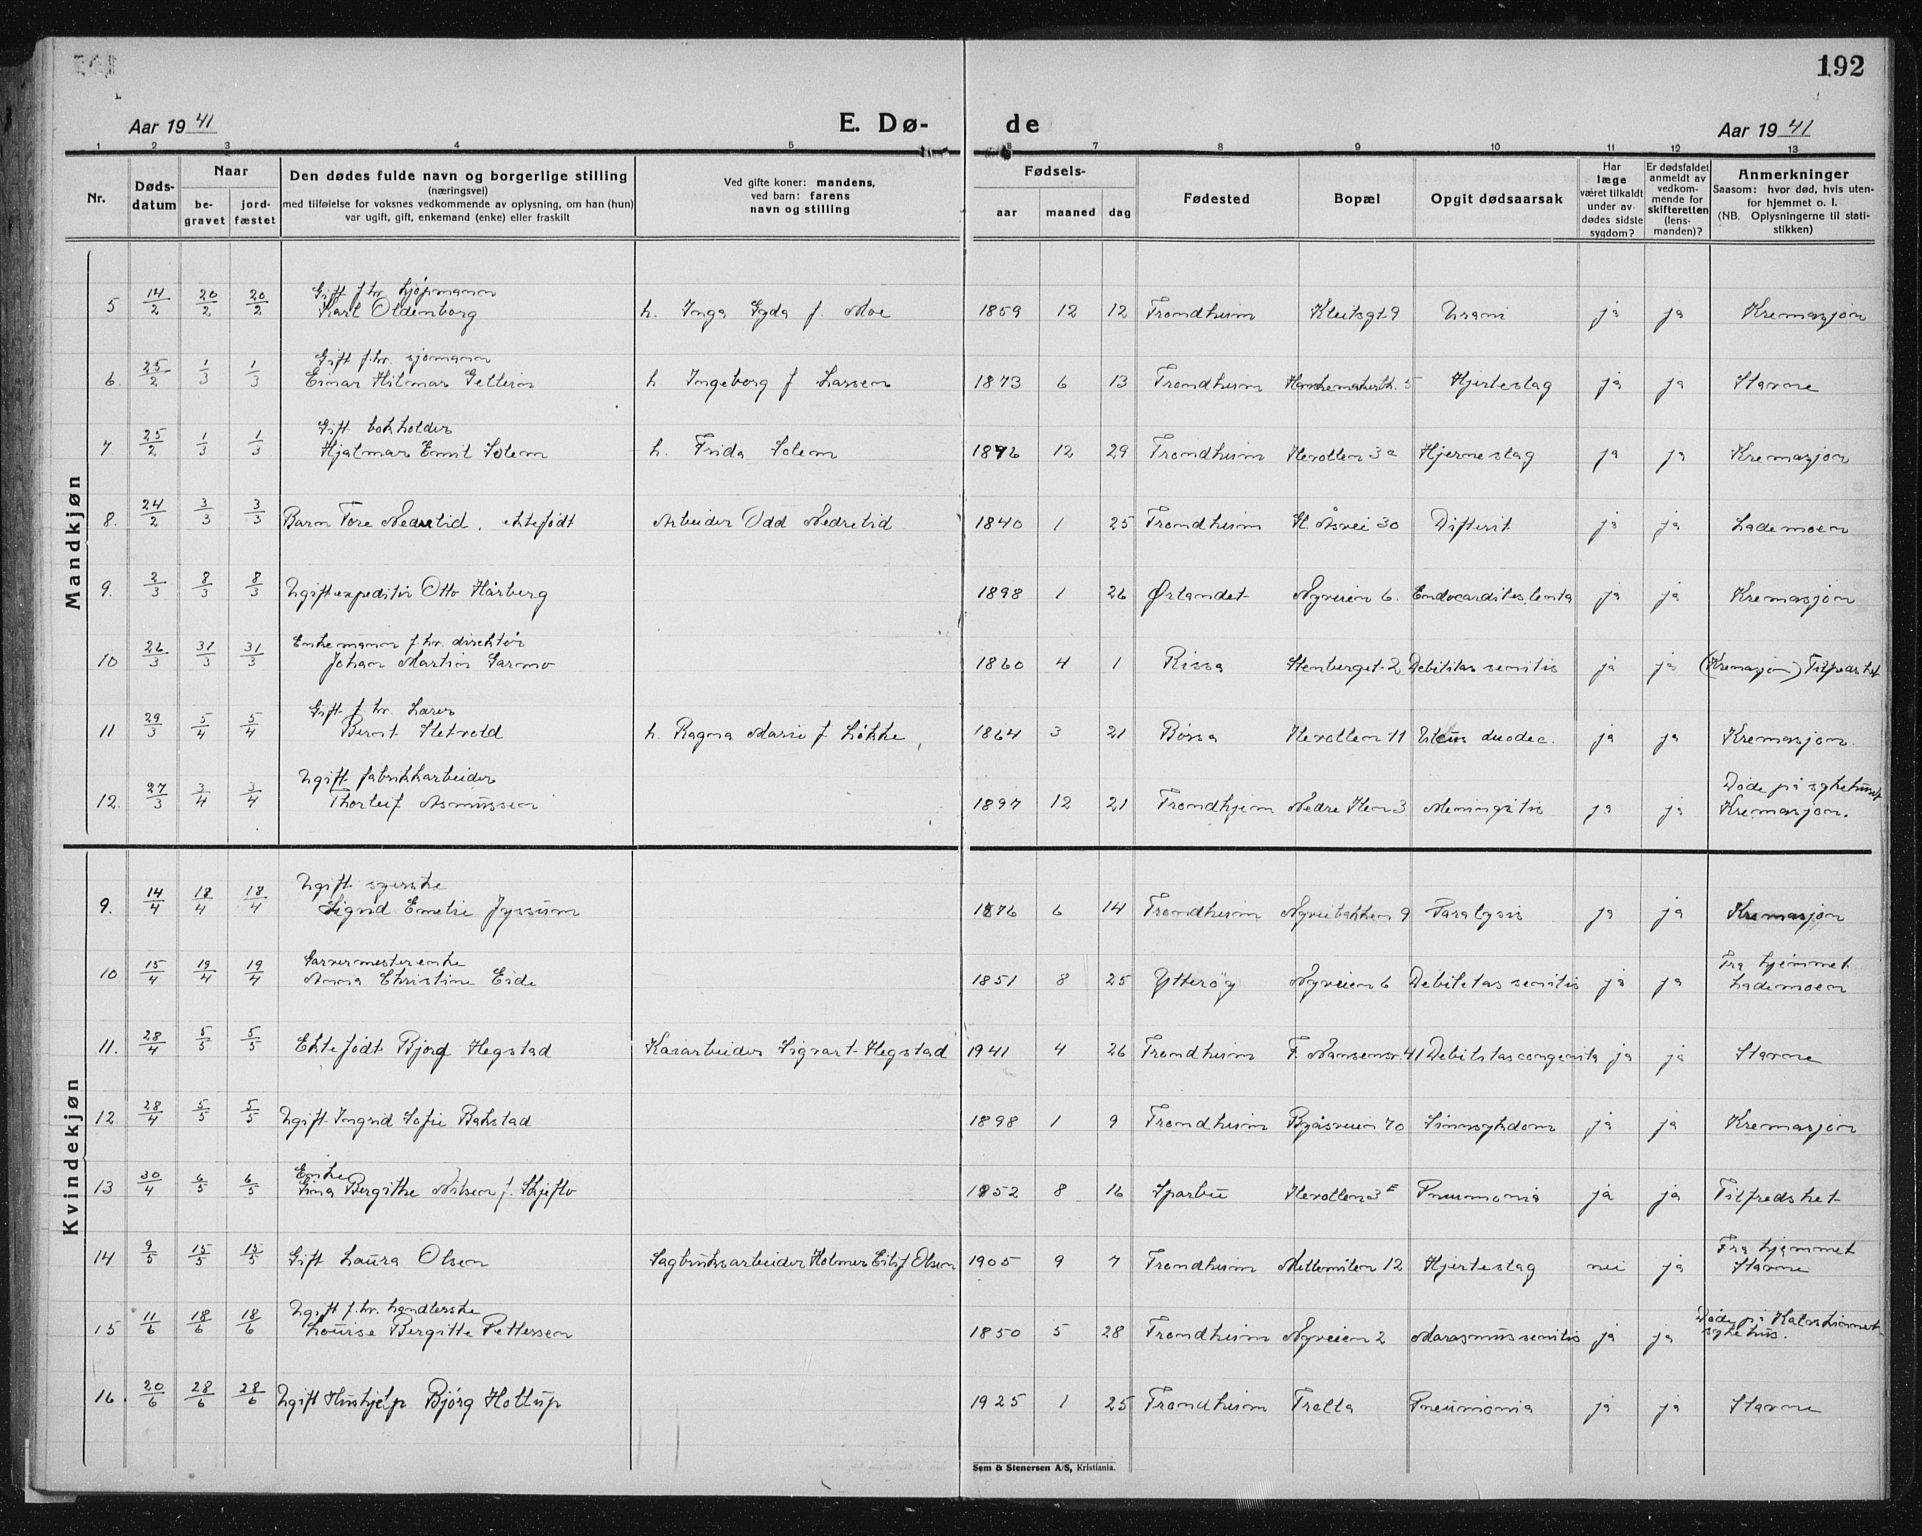 192
Aar 1941 E. Dø- de Aar 1941
1 2 3 4 5 6 7 8 9 10 11 12 13
Nr. Døds-datum Naar be-gravet jord-fæstet Den dødes fulde navn og borgerlige stilling (næringsvei) med tilføielse for voksnes vedkommende av oplysning, om han (hun) var ugift, gift, enkemand (enke) eller fraskilt Ved gifte koner: mandens, ved barn: farens navn og stilling Fødsels- aar maaned dag Fødested Bopæl Opgit dødsaarsak Har læge været tilkaldt under avdødes sidste sygdom? Er dødsfaldet anmeldt av vedkommende for skifteretten (lensmanden)? Anmerkninger Saasom: hvor død, hvis utenfor hjemmet o. l. (NB. Oplysningerne til statistikken)
Mandkjøn
5 14/2 20/2 20/2 Gift f.hv. kjøpmann Karl Oldenborg h. Inga Gyda f. Moe 1859 12 12 Trondheim Kleitsgt. 9 Urami ja ja Kremasjon
6. 25/2 1/3 1/3 Gift f.hv. sjømann Einar Hilmar Getterin h. Ingeborg f Larsen 1873 6 13 Trondheim 5 Hjerteslag ja ja Stavne
7. 25/2 1/3 1/3 Gift bokholder Hjalmar Emil Solem h. Frida Solem 1876 12 29 Trondheim Ilevollen 3a Hjerneslag ja ja Kremasjon
8. 24/2 3/3 3/3 Barn Tore Nedretid, ektefødt Arbeider Odd Nedretid 1940 1 25 Trondheim Åsvei 30 Difterit ja ja Lademoen
9. 2/3 8/3 8/3 Ugift expeditør Otto Hårberg 1898 1 26 Ørlandet Nyveien 6. Endocarditis lenta ja ja Kremasjon
10 26/3 31/3 31/3 Enkemann f.hv. direktør Johan Martin Sarmo 1860 4 1 Rissa Stenberget. 2 Debilitas senilis ja ja (Kremasjon) Tilfredshet
11 29/3 5/4 5/4 Gift f.hv. lærer Bernt Sletvold h. Ragna Marie f Løkke, 1864 3 21 Børsa Ilevollen 11 Ulcus duodec. ja ja Kremasjon.
12. 27/3 3/4 3/4 Ugift fabrikkarbeider Thorleif Asmussen 1897 12 21 Trondhjem Nedre Ilen 3 Meningitis ja ja Døde på sykehuset Kremasjon.
Kvindekjøn
9. 14/4 18/4 18/4 Ugift syerske Sigrid Emelie Jyssum 1876 6 14 Trondheim Nyveibakken 9 Paralysis ja ja Kremasjon
10 15/4 19/4 19/4 Garvermesterenke Anna Christine Eide 1851 8 25 Ytterøy Nyveien 6 Debilitas senilis ja ja Fra hjemmet Lademoen
11. 28/4 5/5 5/5 Ektefødt Bjørg Hegstad Kaiarbeider Sigvart Hegstad 1941 4 26 Trondheim F. Nansensv. 41 Debilitas congenita ja ja Stavne
12. 28/4 5/5 5/5 Ugift Ingrid Sofie Bakstad 1898 1 9 Trondheim Byåsveien 70 Sinnsykdom ja ja Kremasjon
13 30/4 6/5 6/5 Enke Gina Bergithe Nilsen f. Skjefto 1852 8 16 Sparbu Ilevollen 3E Pneumonia ja ja Tilfredshet
14 9/5 15/5 15/5 Gift Laura Olsen Sagbruksarbeider Holmer Eilif Olsen 1905 9 7 Trondheim Mellemilen 12 Hjerteslag nei ja Fra hjemmet Stavne
15 11/6 18/6 18/6 Ugift f.hv. handlerske Louise Bergitte Pettersen 1850 5 28 Trondheim Nyveien 2 Marasmus senilis ja ja Døde på sykehus.
16. 20/6 28/6 28/6 Ugift Hushjelp Bjørg Hottup 1925 1 25 Trondheim Trolla Pneumonia ja ja Stavne
Sem & Stenersen A/S, Kristiania.